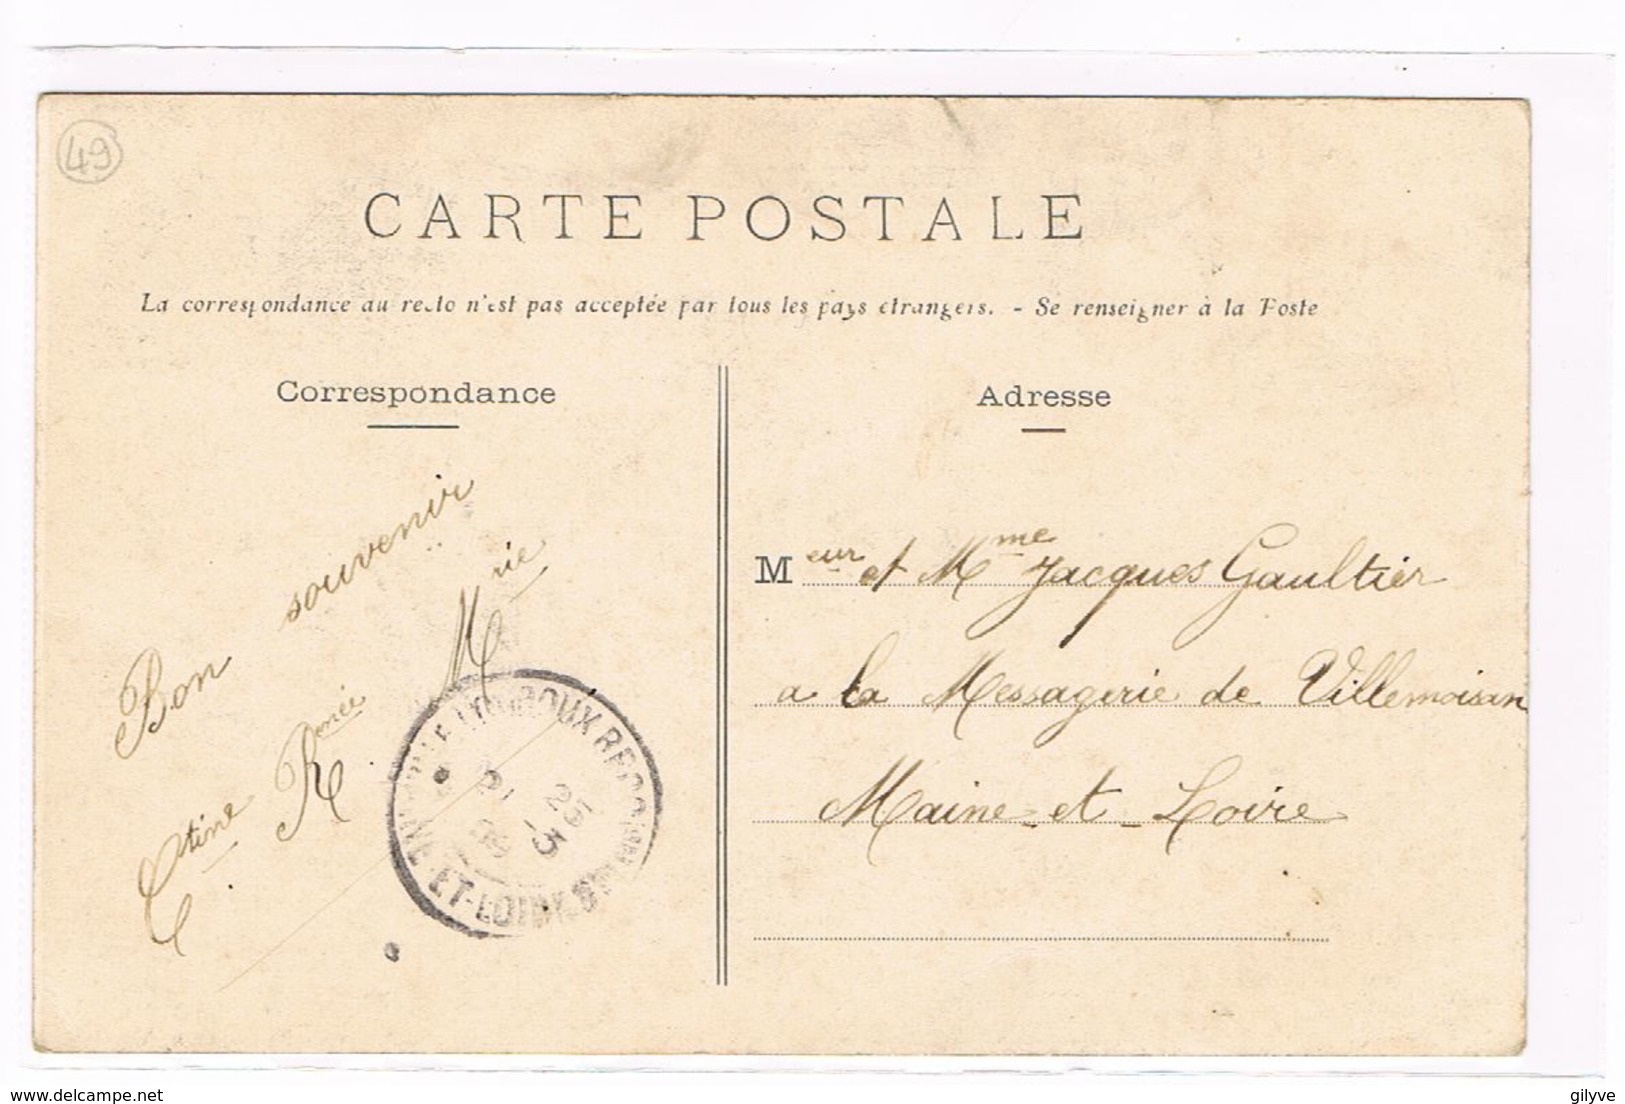 49
CARTE POSTALE
La correspondance au recto n'est pas acceptée par tous les pays étrangers. - Se renseigner à la Poste
Correspondance
Bon souvenir
Ctine Rénée Mrie
ROUX
ET-LOIRE
25 -5
Adresse
Meur et Mme Jacques Gaultier
a la Messagerie de Villemoisan
Maine-et-Loire
www.delcampe.net
gilyve